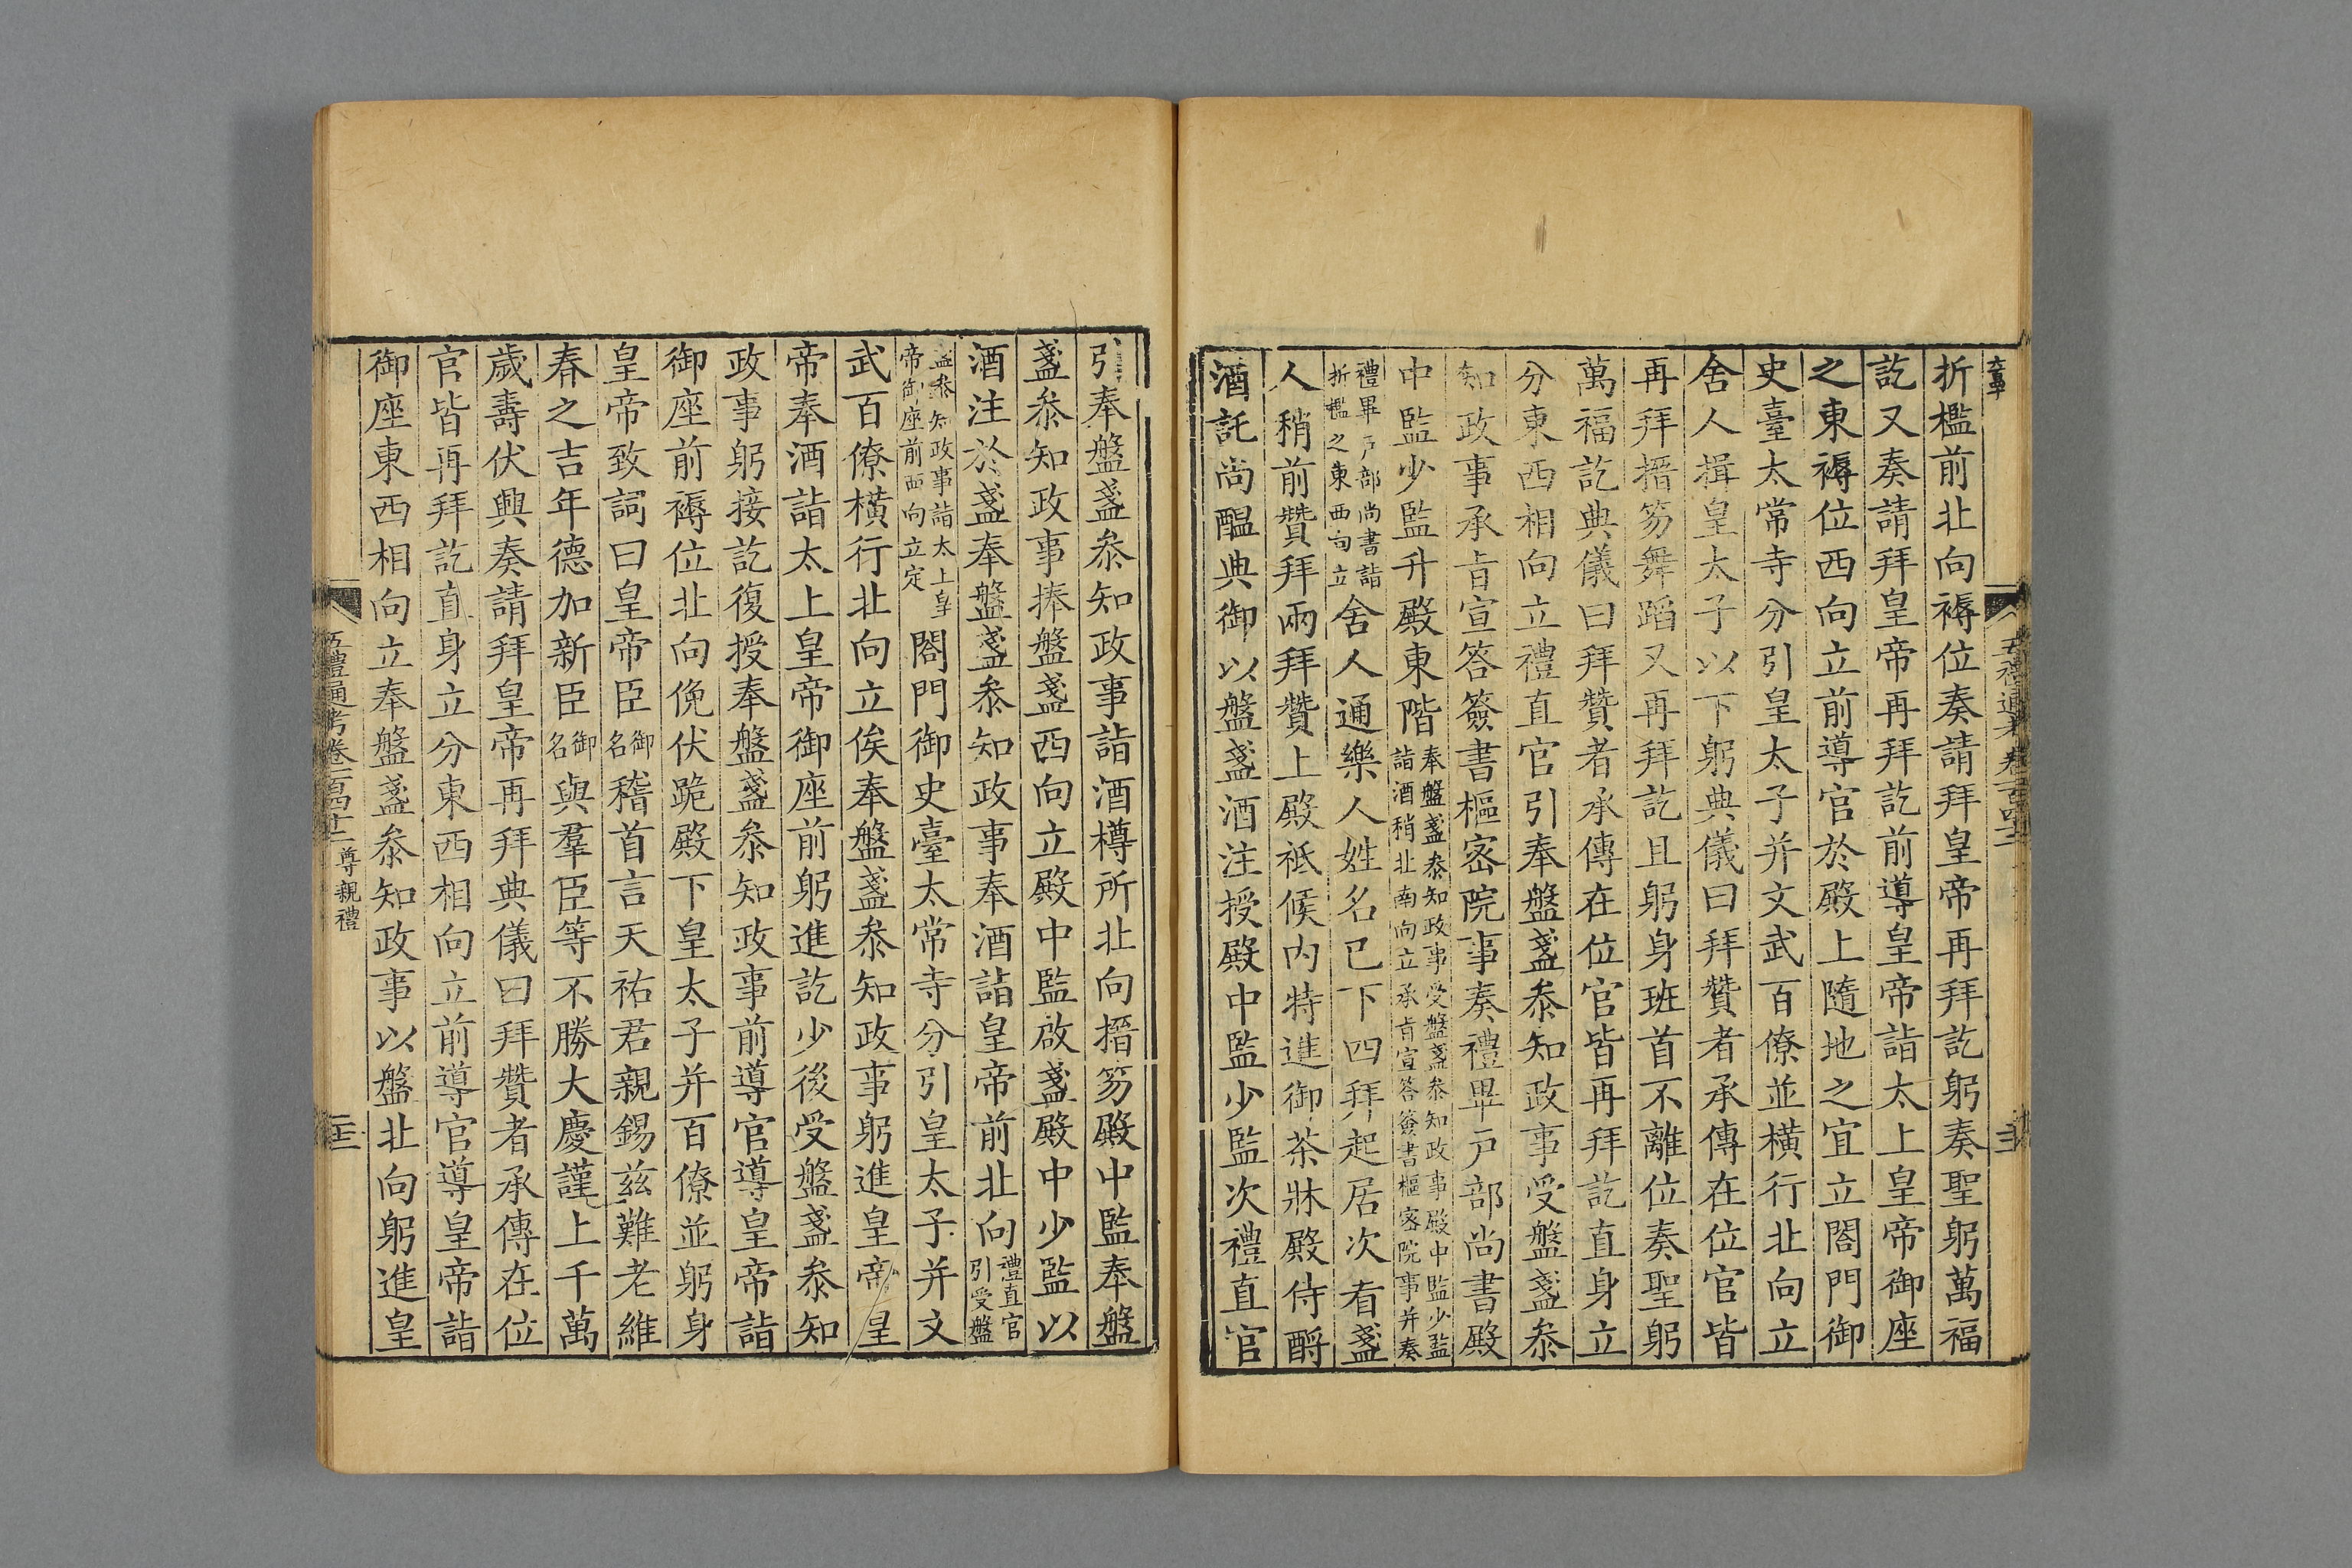 折檻前北向褥位奏請拜皇帝再拜訖躬奏聖躬萬福
訖又奏請拜皇帝再拜訖前導皇帝詣太上皇帝御座
之東褥位西向立前導官於殿上隨地之宜立閤門御
史臺太常寺分引皇太子并文武百僚並橫行北向立
舍人揖皇太子以下躬典儀曰拜贊者承傳在位官皆
再拜搢笏舞蹈又再拜訖且躬身班首不離位奏聖躬
萬福訖典儀曰拜贊者承傳在位官皆再拜訖直身立
分東西相向立禮直官引奉盤盞叅知政事受盤盞叅
知政事承旨宣答簽書樞密院事奏禮畢戶部尚書殿
中監少監升殿東階奉盤盞叅知政事受盤盞叅知政事殿中監少監
詣酒稍北南向立承旨宣答簽書樞密院事并奏
禮畢戶部尚書詣
折檻之東西向立舍人通樂人姓名已下四拜起居次看盞
人稍前贊拜兩拜贊上殿祗候内特進御茶牀殿侍酹
酒訖尚醖典御以盤盞酒注授殿中監少監次禮直官
引奉盤盞叅知政事詣酒樽所北向搢笏殿中監奉盤
盞叅知政事捧盤盞西向立殿中監啟盞殿中少監以
酒注於盞奉盤盞叅知政事奉酒詣皇帝前北向禮直官
引受盤
盞叅知政事詣太上皇
帝御座前西向立定閤門御史臺太常寺分引皇太子并文
武百僚橫行北向立俟奉盤盞叅知政事躬進皇帝皇
帝奉酒詣太上皇帝御座前躬進訖少後受盤盞叅知
政事躬接訖復授奉盤盞叅知政事前導官導皇帝詣
御座前褥位北向俛伏跪殿下皇太子并百僚並躬身
皇帝致詞曰皇帝臣御名稽首言天祐君親錫兹難老維
春之吉年德加新臣御名與羣臣等不勝大慶謹上千萬
歲壽伏興奏請拜皇帝再拜典儀曰拜贊者承傳在位
官皆再拜訖直身立分東西相向立前導官導皇帝詣
御座東西相向立奉盤盞叅知政事以盤北向躬進皇
五禮通考卷一百四十二 尊親禮